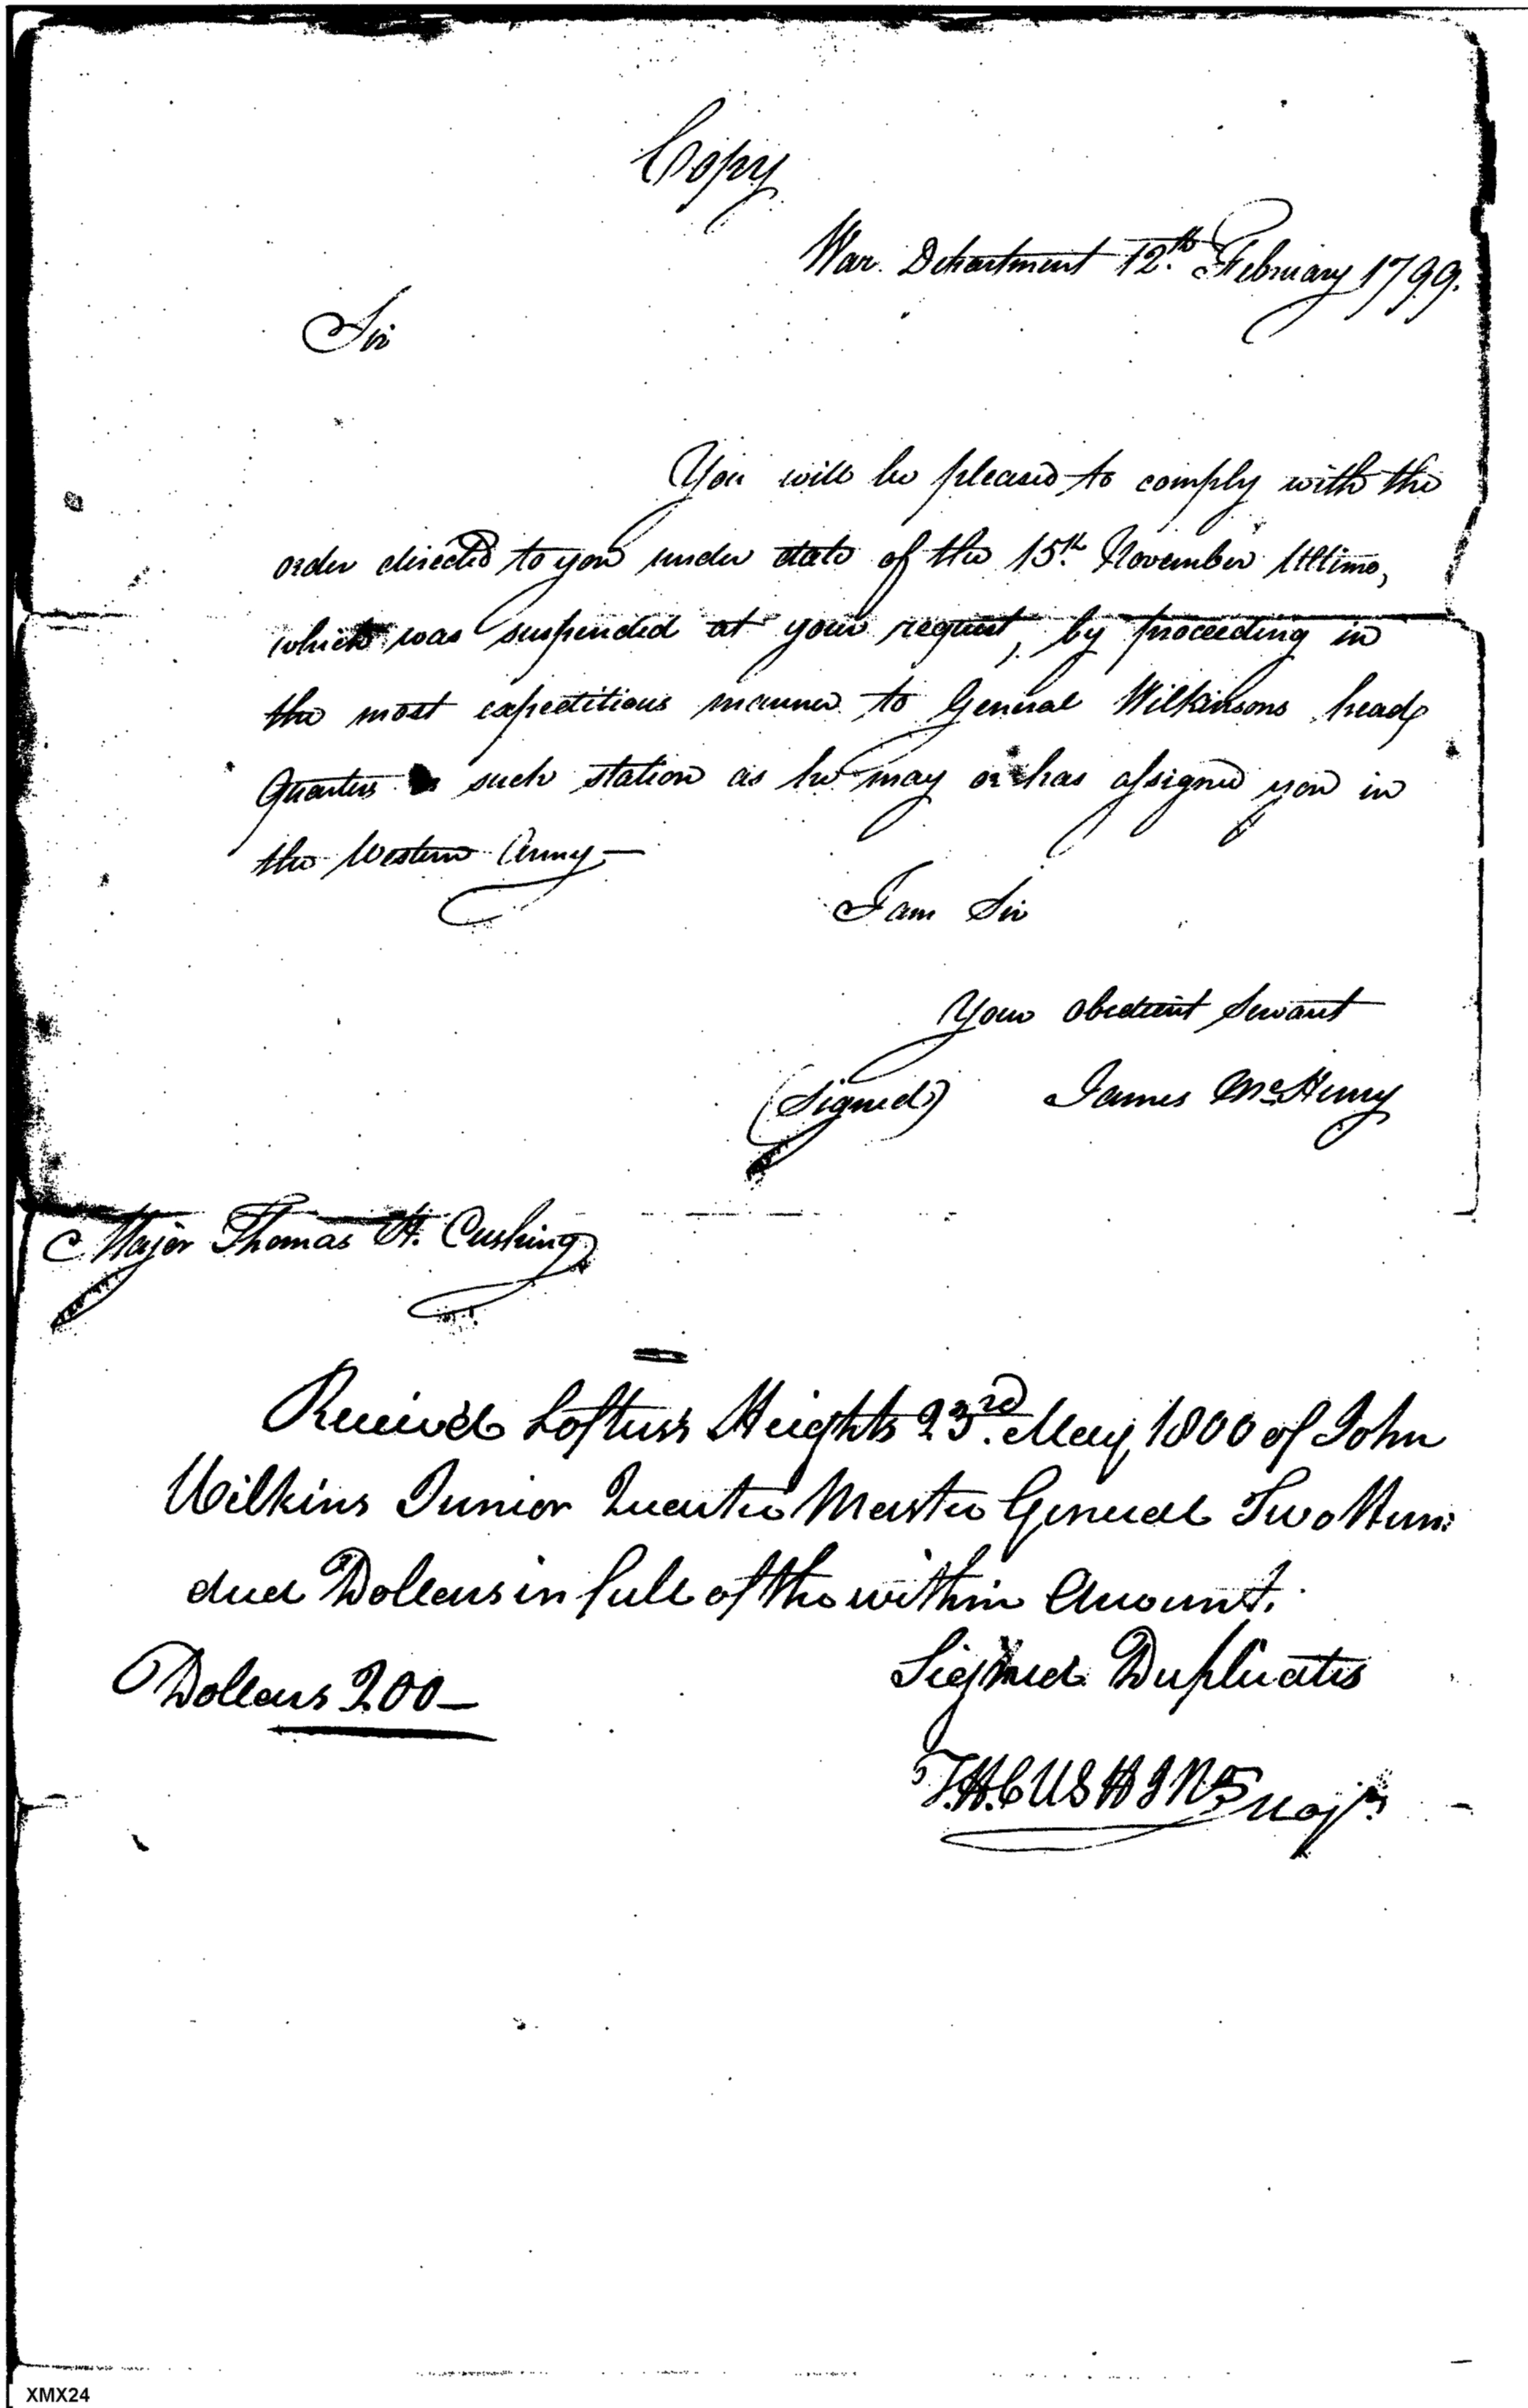 Copy
War Department 12th. February 1799.
Sir
You will be pleased to comply with the
order directed to you under date of the 15th. November Ultimo,
which was suspended at your request, by proceeding in
the most expeditious manner to General Wilkinsons head
Quarters or such station as he may or has assigned you in
the Western Army—
I am Sir
Your obedient Servant
(Signed) James McHenry
Major Thomas H. Cushing
Received Loftuss Heights 23rd. May 1800 of John
Wilkins Junior Quarter Master General Two Hun:
dred Dollars in full of the within Amount.
Signed Duplicates
Dollars 200—
T.H.CUSHING Majr.
XMX24